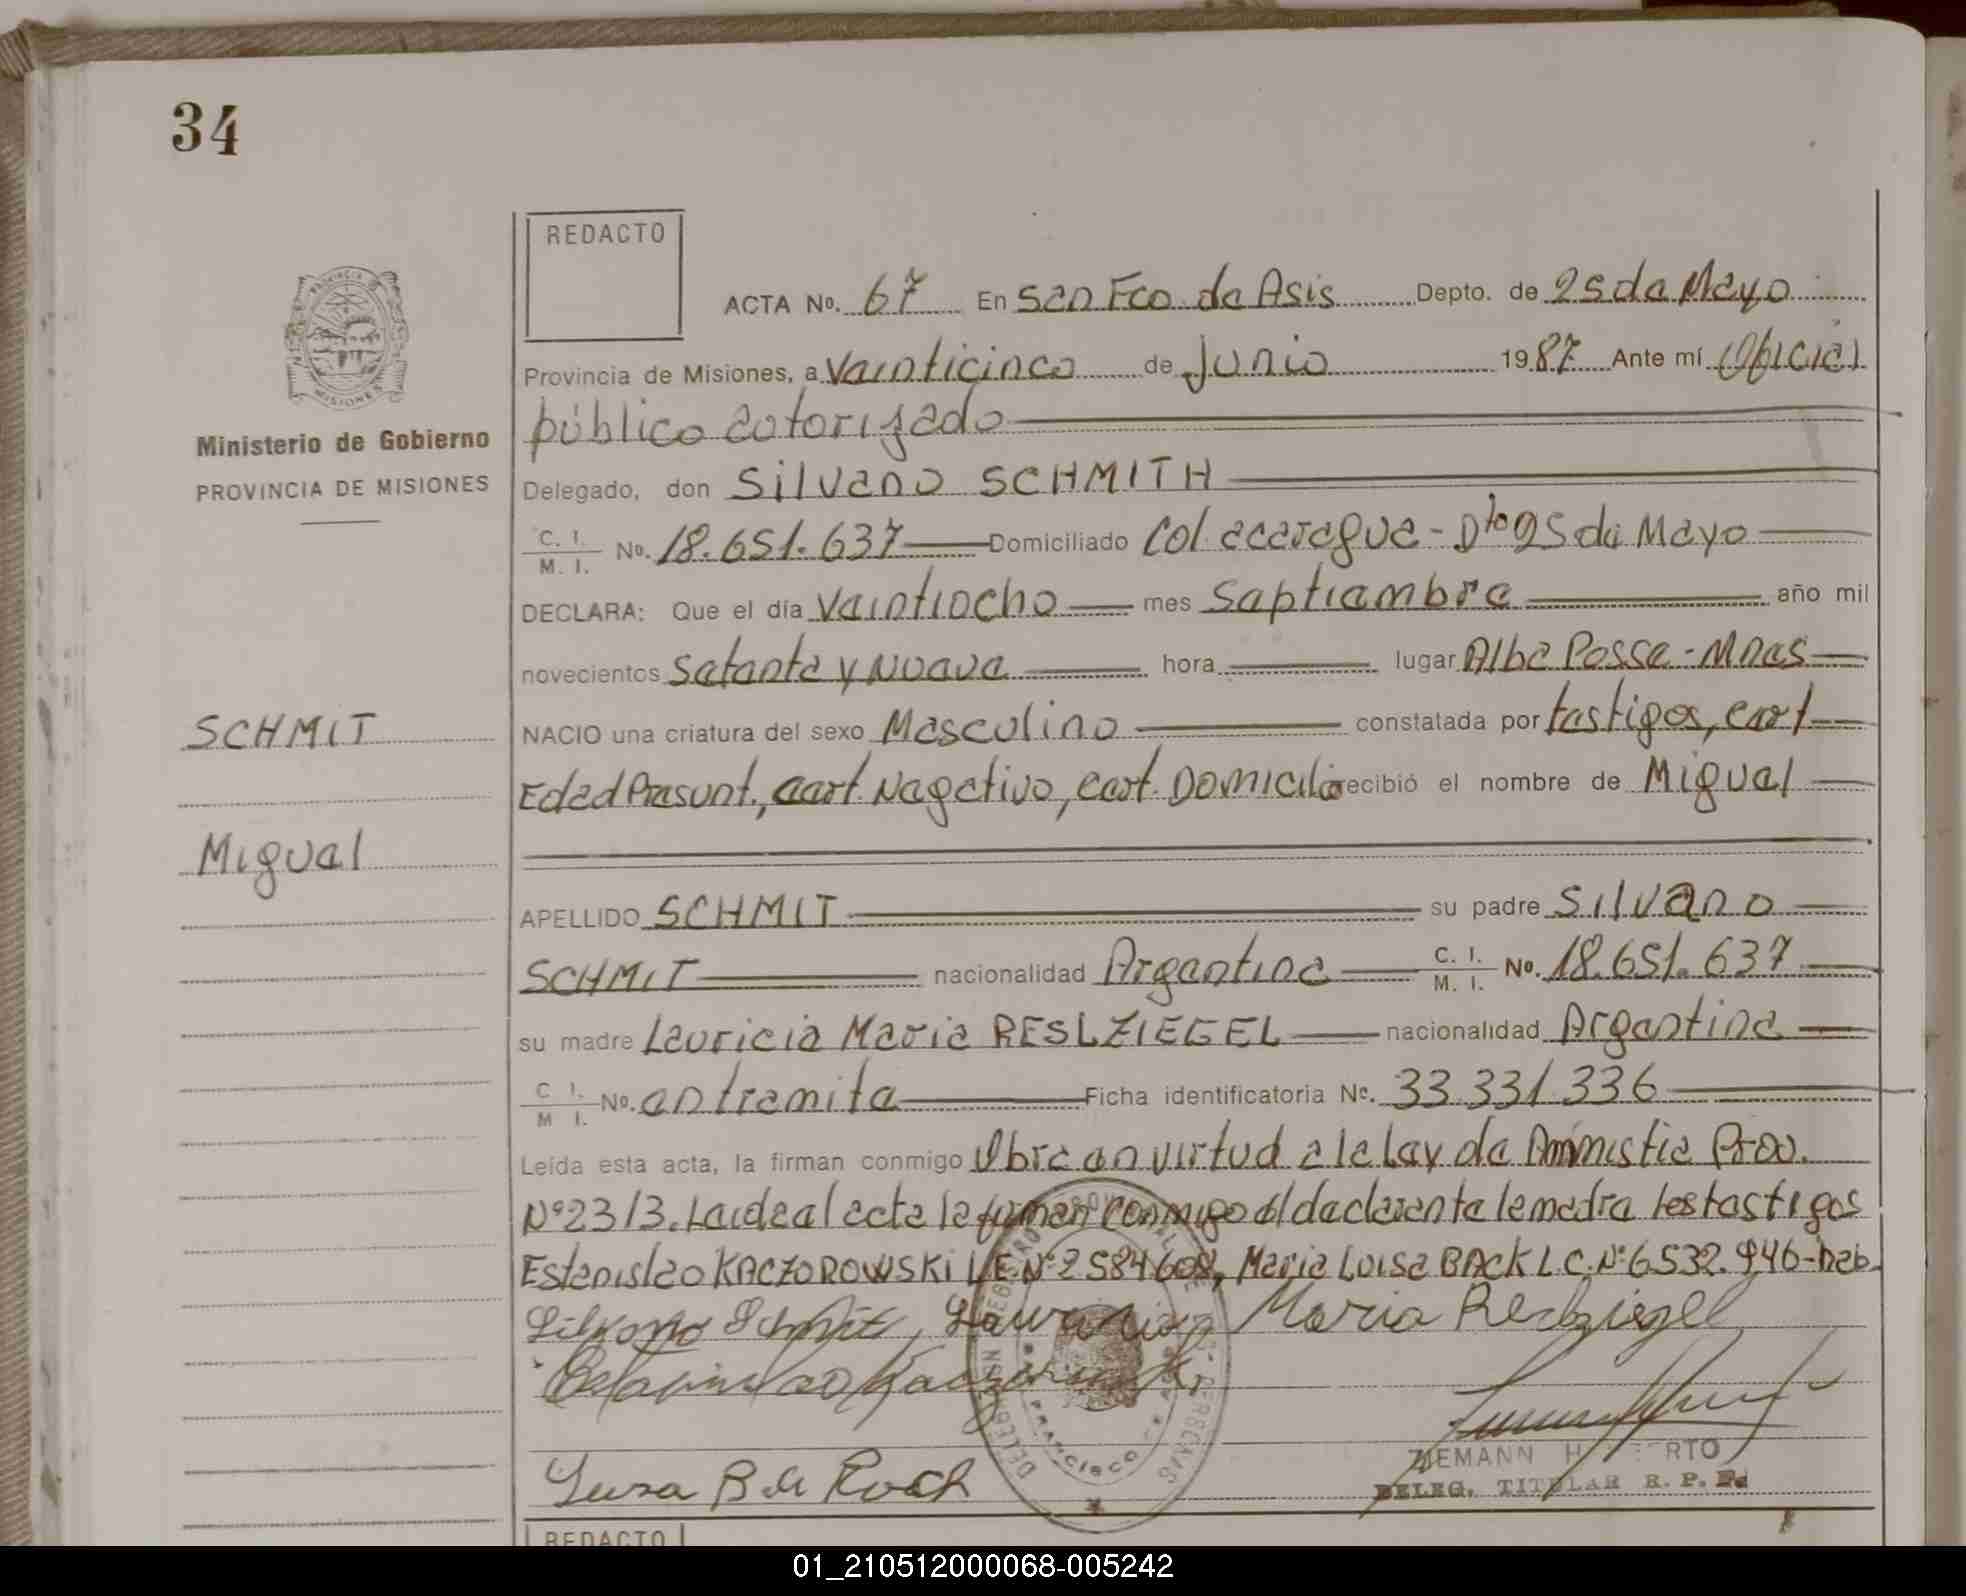 34
REDACTO
ACTA No. 67 En San Fco de Asis Depto. de 25 de Mayo
Provincia de Misiones, a Veinticinco de Junio 1987 Ante mí Oficial
público autorizado
Ministerio de Gobierno
PROVINCIA DE MISIONES
Delegado, don Silvano SCHMITH
C. I. M. I. No. 18.651.637 Domiciliado Col acaragua - Dto 25 de Mayo
DECLARA: Que el día Veintiocho mes Septiembre año mil
novecientos Setenta y Nueve hora lugar Alba Posse - Mnes
SCHMIT
NACIO una criatura del sexo Masculino constatada por testigos, cert
Edad Presunt., cert. Negativo, cert. Domicilio recibió el nombre de Miguel
Miguel
APELLIDO SCHMIT su padre Silvano
SCHMIT nacionalidad Argentina C. I. M. I. No. 18.651.637
su madre Lauricia Maria RESLZIEGEL nacionalidad Argentina
C I. M I. No. en tramite Ficha identificatoria No. 33.331.336
Leída esta acta, la firman conmigo Obra en virtud a la Ley de Amnistia Prov.
Nº 2313. Leida el acta la firman conmigo el declarante la madre los testigos
Estanislao KACZOROWSKI L.E. Nº 2584608, Maria Luisa BACK L.C. Nº 6532.946-hab.
Silvano Schmit, Lauricia Maria Reslziegel
Estanislao Kaczorowski
Luisa B de Koch
ZIEMANN H
DELEG. TITULAR R. P.
REDACTO
01_210512000068-005242